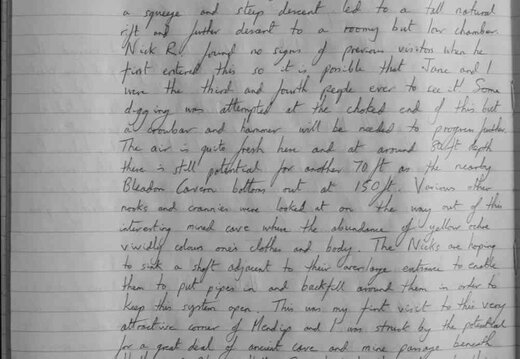 a squeeze and steep descent led to a tall natural
rift and further descent to a roomy but low chamber.
Nick R. found no signs of previous visitors when he
first entered this so it is possible that Jane and I
were the third and fourth people ever to see it! Some
digging was attempted at the choked end of this but
a crowbar and hammer will be needed to progress further.
The air is quite fresh here and at around 80ft depth
there is still potential for another 70 ft as the nearby
Bleadon Cavern bottoms out at 150ft. Various other
nooks and crannies were looked at on the way out of this
interesting mined cave where the abundance of yellow ochre
vividly colours ones clothes and body. The Nicks are hoping
to sink a shaft adjacent to their entrance to enable
them to put pipes in and backfill around them in order to
keep this system open. This was my first visit to this very
attractive corner of Mendip and I was struck by the potential
for a great deal of ancient cave and mine passage beneath